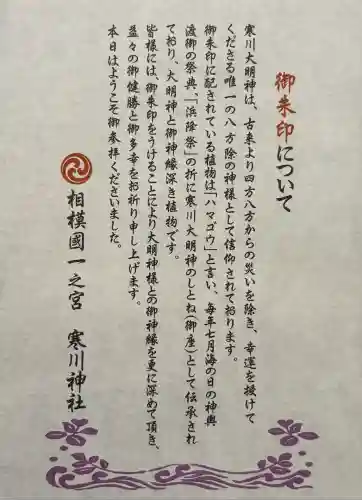 御朱印について
寒川大明神は、古来より四方八方からの災いを除き、幸運を授けて
くださる唯一の八方除の神様として信仰されて於ります。
御朱印に配されている植物は「ハマゴウ」と言い、毎年七月海の日の神輿
渡御の祭典、「浜降祭」の折に寒川大明神のしとね(御座)として伝承され
て於り、大明神と御神縁深き植物です。
皆様には、御朱印をうけることにより大明神様との御神縁を更に深めて頂き、
益々の御健勝と御多幸をお祈り申し上げます。
本日はようこそ御参拝くださいました。
相模國一之宮 寒川神社